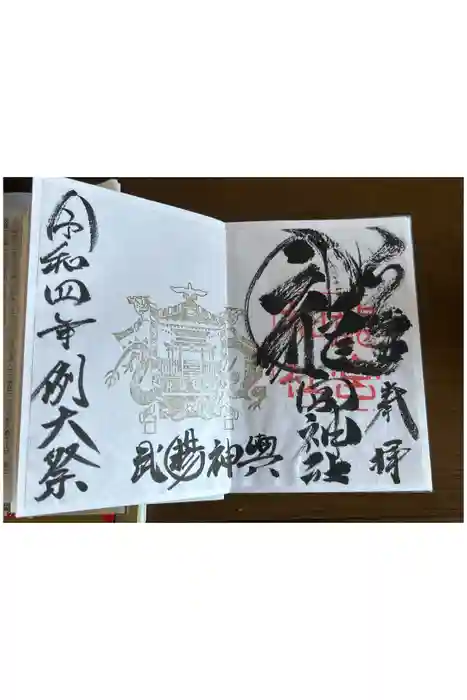 奉拝
神社
武陽神輿
令和四年例大祭